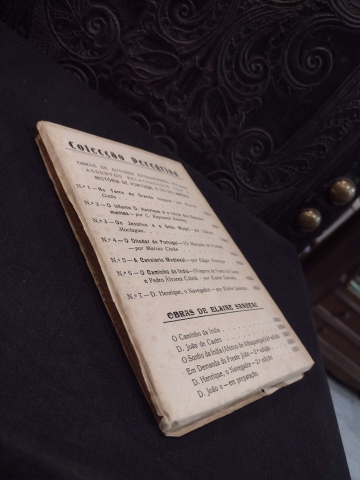 Colecção Peregrina
OBRAS DE AUTORES ESTRANGEIROS
ASSUNTOS RELACIONADOS COM
HISTÓRIA DE PORTUGAL
N.º 1 — Na Terra do Grande
N.º 2 — O Infante D. Henrique e o início dos
— por C. Raymond Beazley
N.º 3 — Os Jesuítas e o Grão Mogol — por
N.º 4 — O Ditador de Portugal — O Marquês de Pombal
— por Marcus Cheke
N.º 5 — A Cavalaria Medieval — por Edgar Prestage
N.º 6 — O Caminho da Índia — de Vasco da Gama
e Pedro Álvares Cabral — por Elaine Sanceau
N.º 7 — D. Henrique, o Navegador — por Elaine Sanceau
OBRAS DE ELAINE SANCEAU
O Caminho da Índia
D. João de Castro
O Sonho da Índia (Afonso de Albuquerque) edição
Em Demanda do Preste João — edição
D. Henrique, o Navegador — edição
D. João II — em preparação.